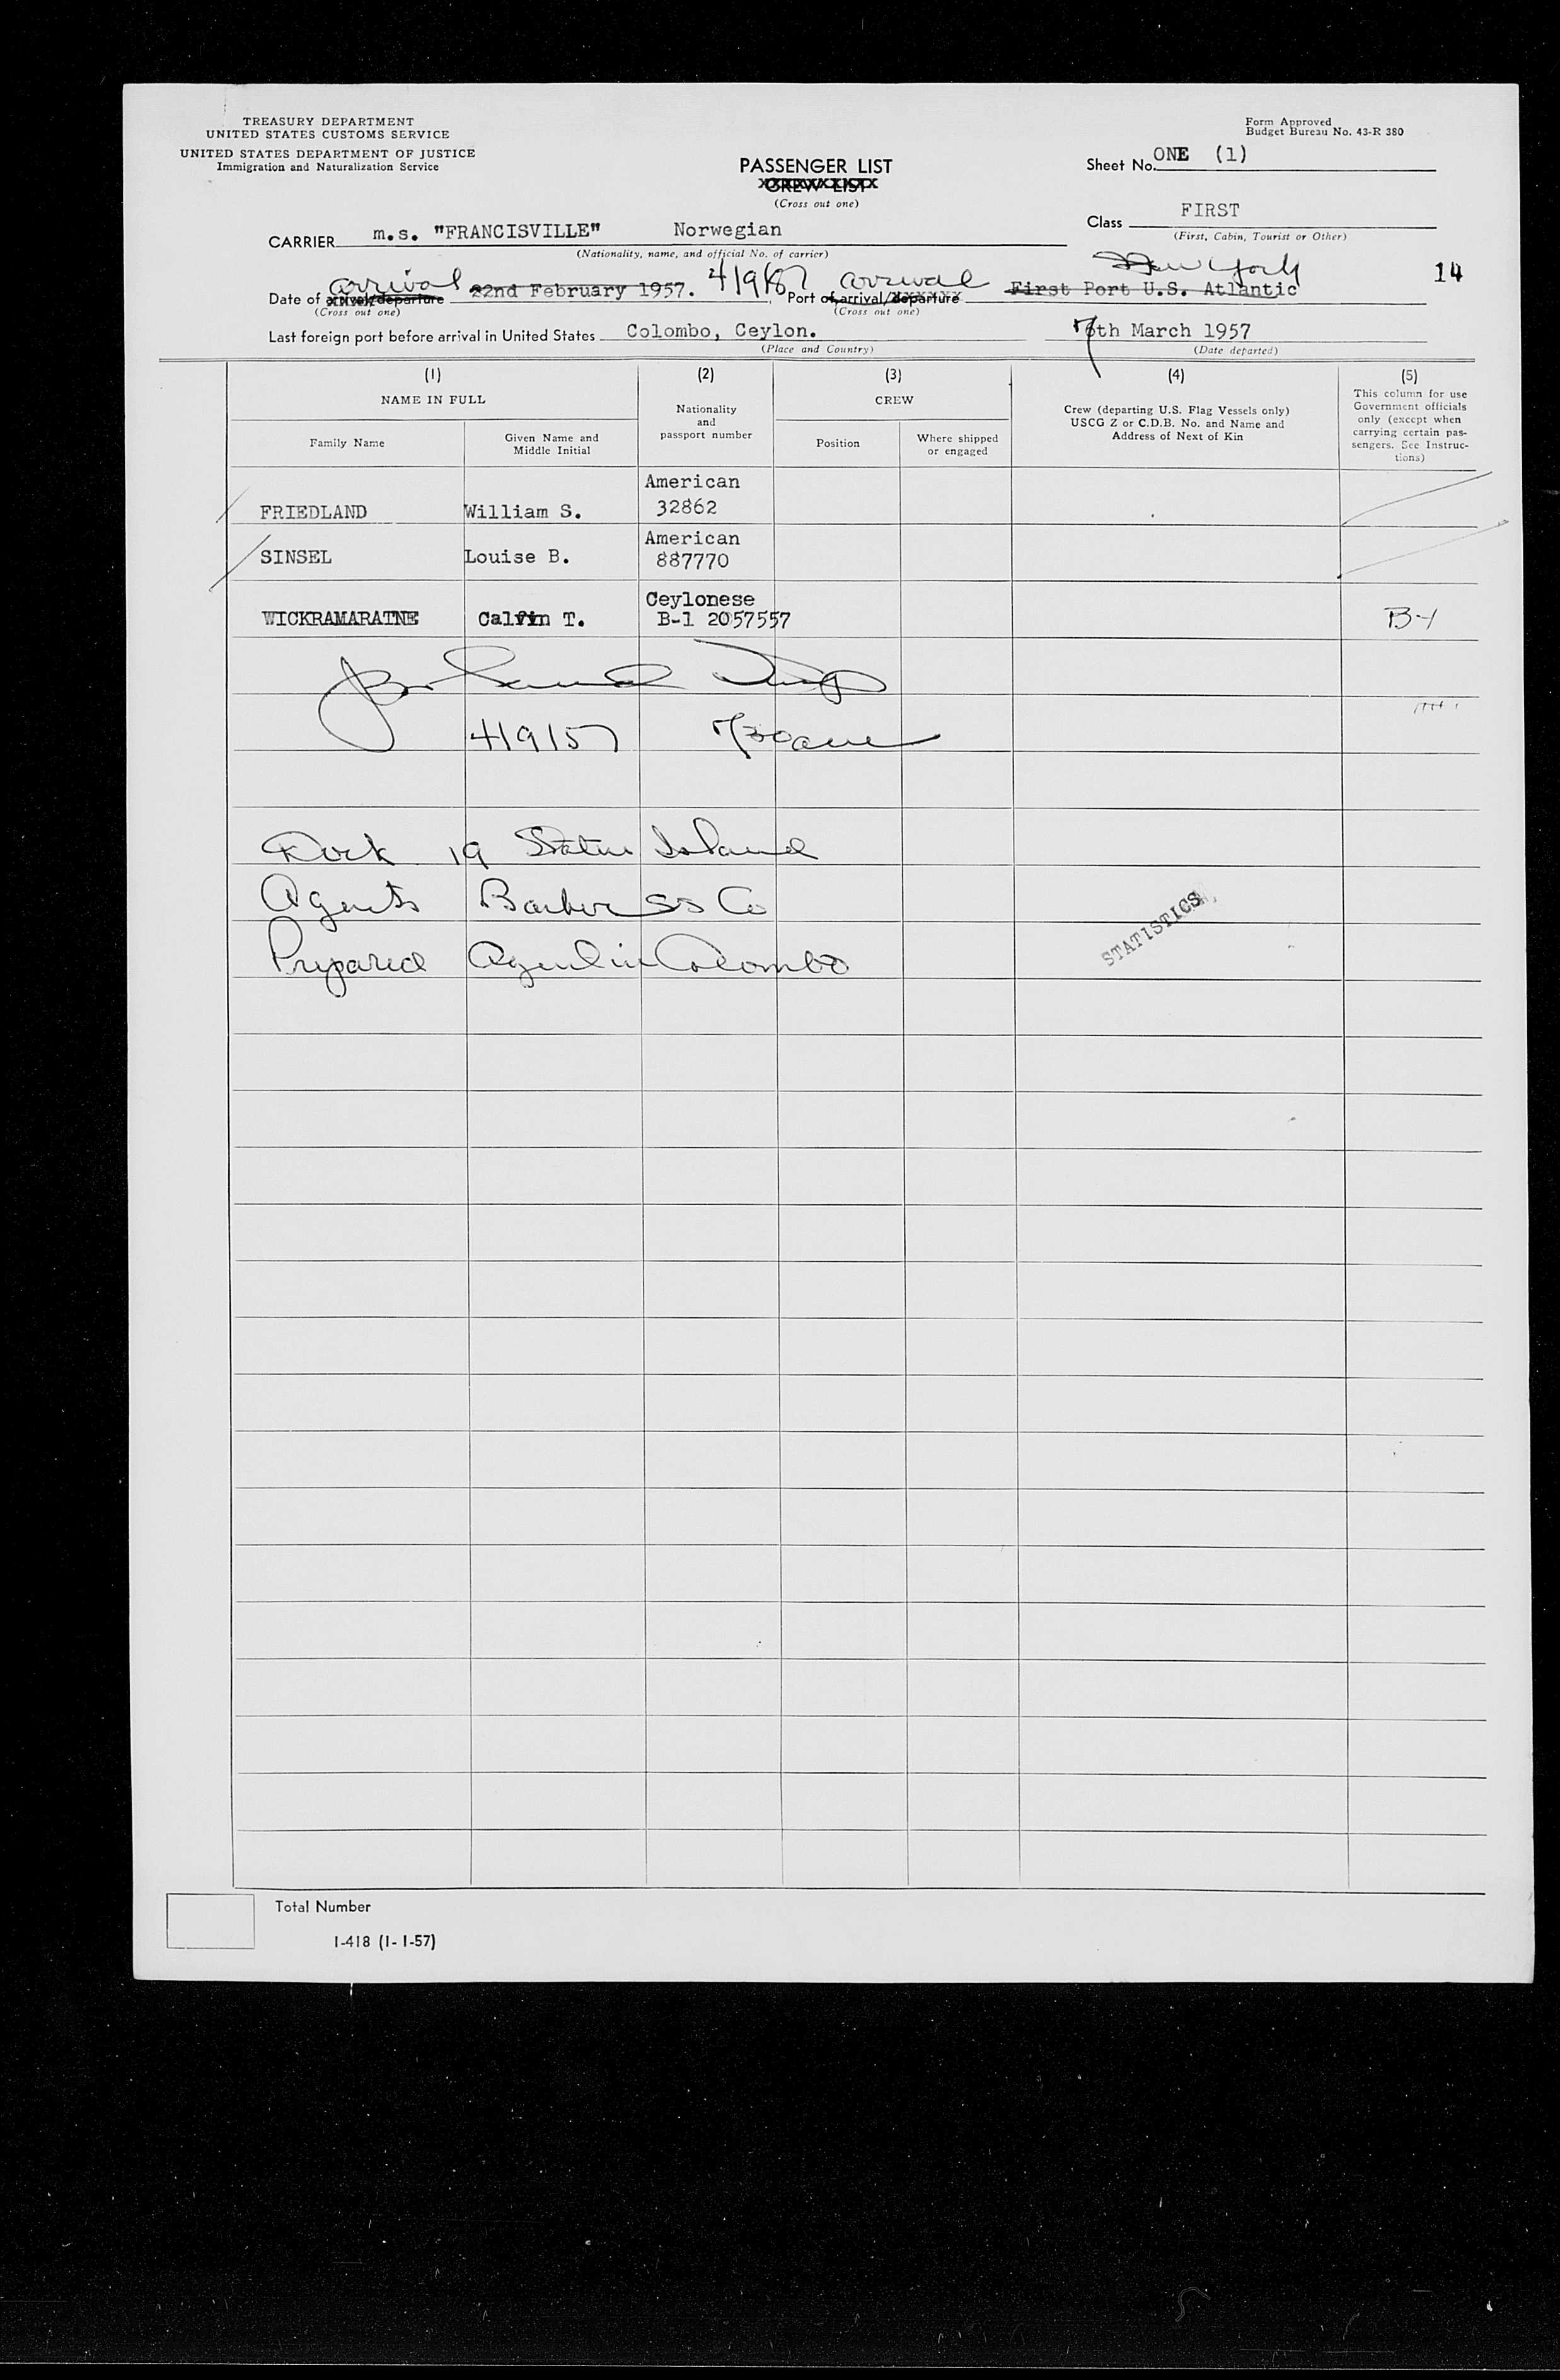 TREASURY DEPARTMENT
UNITED STATES CUSTOMS SERVICE
UNITED STATES DEPARTMENT OF JUSTICE
Immigration and Naturalization Service
Form Approved
Budget Bureau No. 43-R 380
PASSENGER LIST
CREW LIST
(Cross out one)
Sheet No. ONE (1)
Class FIRST
(First, Cabin, Tourist or Other)
CARRIER m.s. "FRANCISVILLE" Norwegian
(Nationality, name, and official No. of carrier)
arrival 4/9/57 arrival New York 14
Date of arrival/departure 22nd February 1957. Port of arrival/departure First Port U.S. Atlantic
(Cross out one) (Cross out one)
Last foreign port before arrival in United States Colombo, Ceylon. 7th March 1957
(Place and Country) (Date departed)
(1) (2) (3) (4) (5)
NAME IN FULL
Nationality and passport number
CREW
Crew (departing U.S. Flag Vessels only)
USCG Z or C.D.B. No. and Name and
Address of Next of Kin
This column for use
Government officials
only (except when
carrying certain pas-
sengers. See Instruc-
tions)
Family Name
Given Name and
Middle Initial
Position
Where shipped
or engaged
American
FRIEDLAND William S. 32862
American
SINSEL Louise B. 887770
Ceylonese
WICKRAMARATNE Calvin T. B-1 2057557 B-1
4/9/57 730am
Dock 19 Staten Island
Agents Barber SS Co
Prepared Agent in Colombo
STATISTICS
Total Number
I-418 (1-1-57)